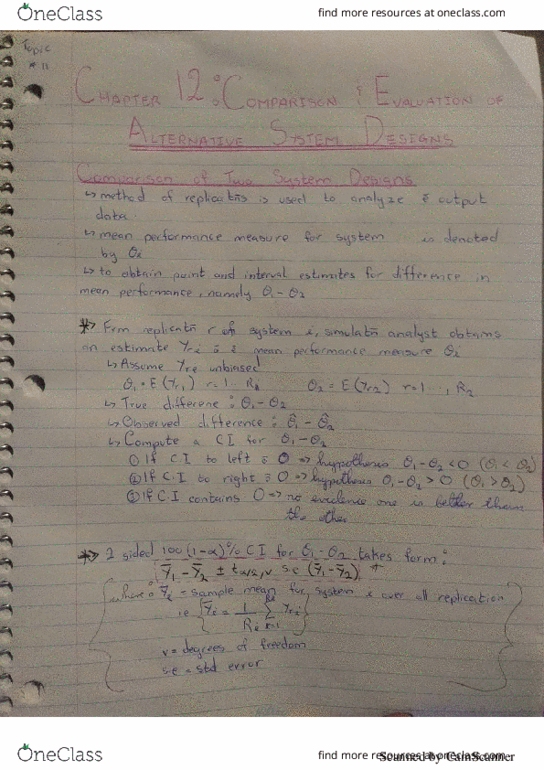 OneClass
find more resources at oneclass.com
Topic
# 11
CHAPTER 12: COMPARISON & EVALUATION OF
ALTERNATIVE SYSTEM DESIGNS
Comparison of Two System Designs
↳ method of replicatns is used to analyze & output
data
↳ mean performance measure for system is denoted
by θi
↳ to obtain point and interval estimates for difference in
mean performance, namely θ1 - θ2
* From replicatn r of system i, simulatn analyst obtains
an estimate Yri of mean performance measure θi
↳ Assume Yri unbiased
θ1 = E(Yr1) r=1 .. R1 θ2 = E(Yr2) r=1 .., R2
↳ True difference : θ1 - θ2
↳ Observed difference : θ̂1 - θ̂2
↳ Compute a CI for θ1 - θ2
① If CI to left of 0 => hypothesis θ1 - θ2 < 0 (θ1 < θ2)
② If C.I to right of 0 => hypothesis θ1 - θ2 > 0 (θ1 > θ2)
③ if C.I contains 0 => no evidence one is better than
the other
* 2 sided 100(1-α)% CI for θ1 - θ2 takes form:
Ȳ1 - Ȳ2 ± tα/2,v se (Ȳ1 - Ȳ2)
where: Ȳi = sample mean for system i over all replication
ie Ȳi = 1/Ri Σ Yri
v = degrees of freedom
se = std error
OneClass
find more resources at oneclass.com
Scanned by CamScanner